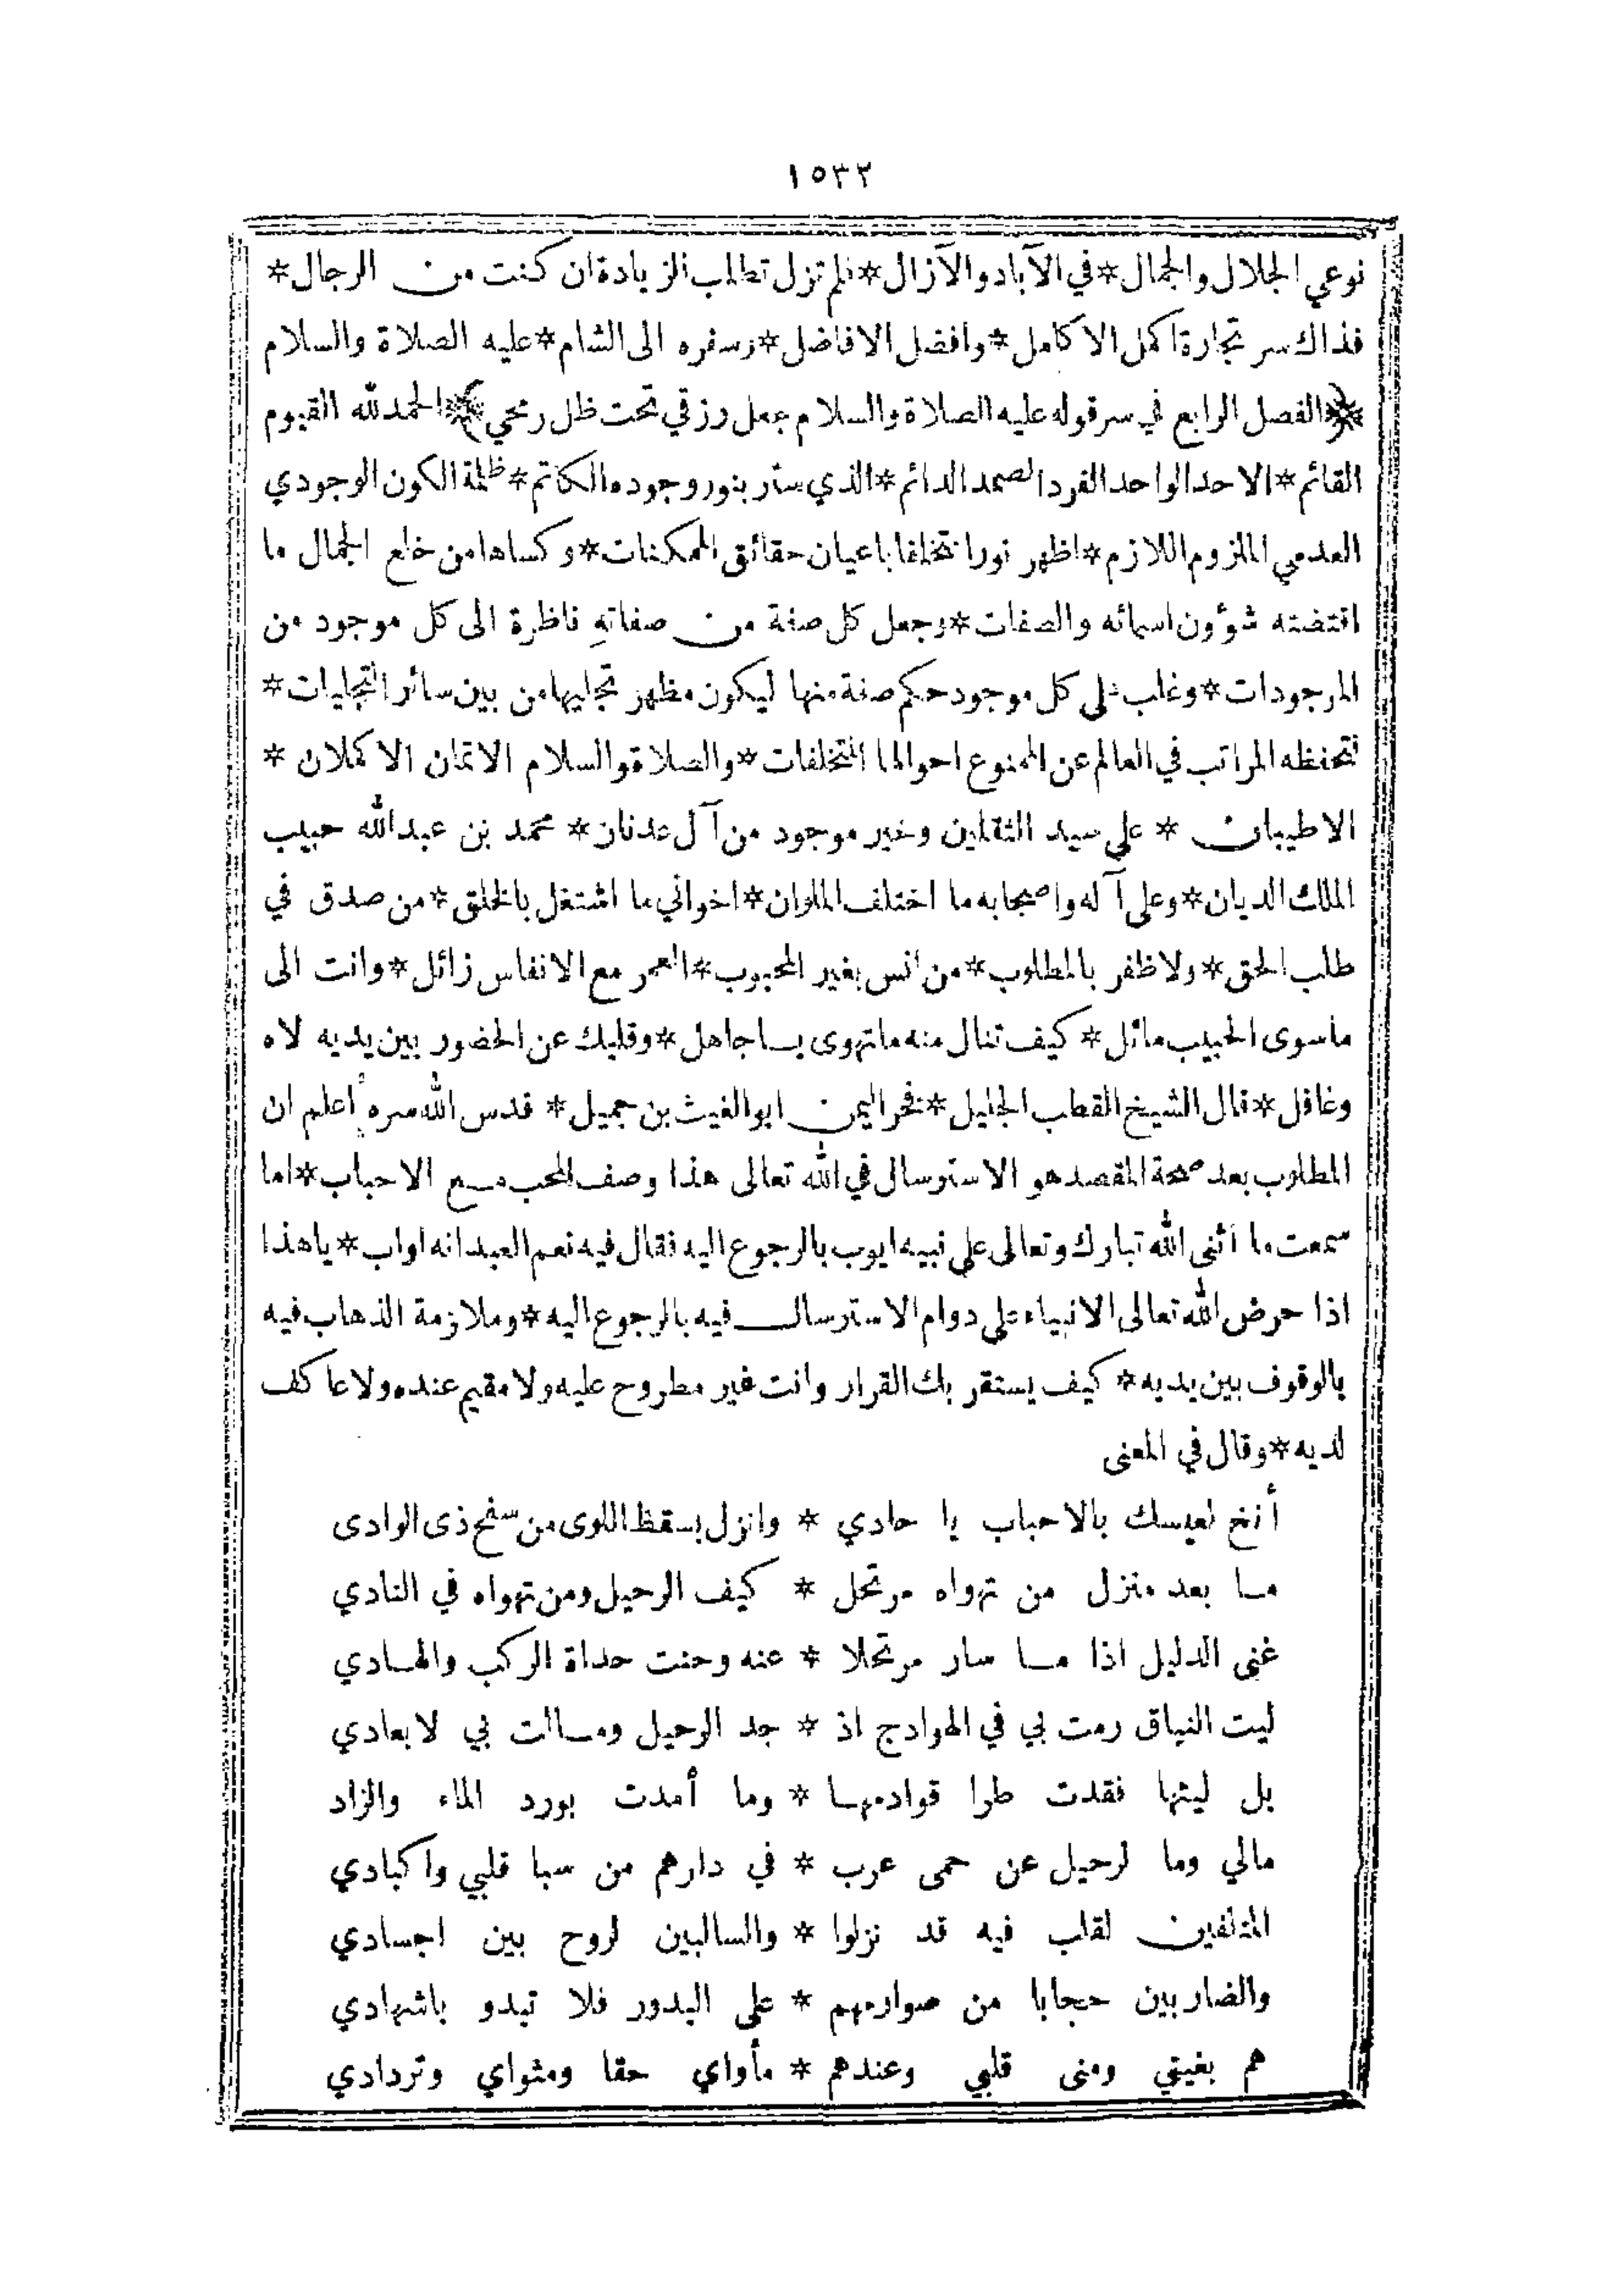 ١٥٣٢
نوعي الجلال والجمال*في الآباد والآزال*فلم تزل تطلب الزيادة ان كنت من الرجال*
فذاك سر تجارة اكمل الاكامل*وافضل الافاضل*وسفره الى الشام*عليه الصلاة والسلام
﴿*الفصل الرابع في سر قوله عليه الصلاة والسلام جعل رزقي تحت ظل رمحي*﴾ الحمد لله القيوم
القائم*الاحد الواحد الفرد الصمد الدائم*الذي ستر بنور وجوده الكاتم*ظلمة الكون الوجودي
العدمي الملزوم اللازم*اظهر نورا متخلفا باعيان حقائق الممكنات*وكساها من خلع الجمال ما
اقتضته شؤون اسمائه والصفات*وجعل كل صفة من صفاته ناظرة الى كل موجود من
الموجودات*وغلب على كل موجود حكم صفة منها ليكون مظهر تجليها من بين سائر التجليات*
فتحفظه المراتب في العالم عن الممنوع احوالها المتخلفات*والصلاة والسلام الاتمان الاكملان *
الاطيبان * على سيد الثقلين وخير موجود من آل عدنان* محمد بن عبد الله حبيب
الملك الديان*وعلى آله واصحابه ما اختلف الملوان*اخواني ما اشتغل بالخلق*من صدق في
طلب الحق*ولا ظفر بالمطلوب*من انس بغير المحبوب*العمر مع الانفاس زائل*وانت الى
ما سوى الحبيب مائل* كيف تنال منه ما تهوى يا جاهل*وقلبك عن الحضور بين يديه لاه
وغافل*قال الشيخ القطب الجليل*فخر اليمن ابو الغيث بن جميل* قدس الله سره أعلم ان
المطلوب بعد صحة المقصد هو الاسترسال في الله تعالى هذا وصف المحب مع الاحباب*اما
سمعت ما اثنى الله تبارك وتعالى على نبيه ايوب بالرجوع اليه فقال فيه نعم العبد انه اواب*يا هذا
اذا حرض الله تعالى الانبياء على دوام الاسترسال فيه بالرجوع اليه*وملازمة الذهاب فيه
بالوقوف بين يديه* كيف يستقر بك القرار وانت غير مطروح عليه ولا مقيم عنده ولا عاكف
لديه*وقال في المعنى
أنخ لعيسك بالاحباب يا حادي * وانزل بسقط اللوى من سفح ذى الوادى
ما بعد منزل من تهواه مرتحل * كيف الرحيل ومن تهواه في النادي
غنى الدليل اذا ما سار مرتحلا * عنه وحنت حداة الركب والهادي
ليت النياق رمت بي في الهوادج اذ * جد الرحيل ومالت بي لابعادي
بل ليتها فقدت طرا قوادمها * وما أمدت بورد الماء والزاد
مالي وما لرحيل عن حمى عرب * في دارهم من سبا قلبي واكبادي
المتلفين لقلب فيه قد نزلوا * والسالبين لروح بين اجسادي
والضاربين حجابا من صوارمهم * على البدور فلا تبدو باشهادي
هم بغيتي ومنى قلبي وعندهم * مأواي حقا ومثواي وتردادي